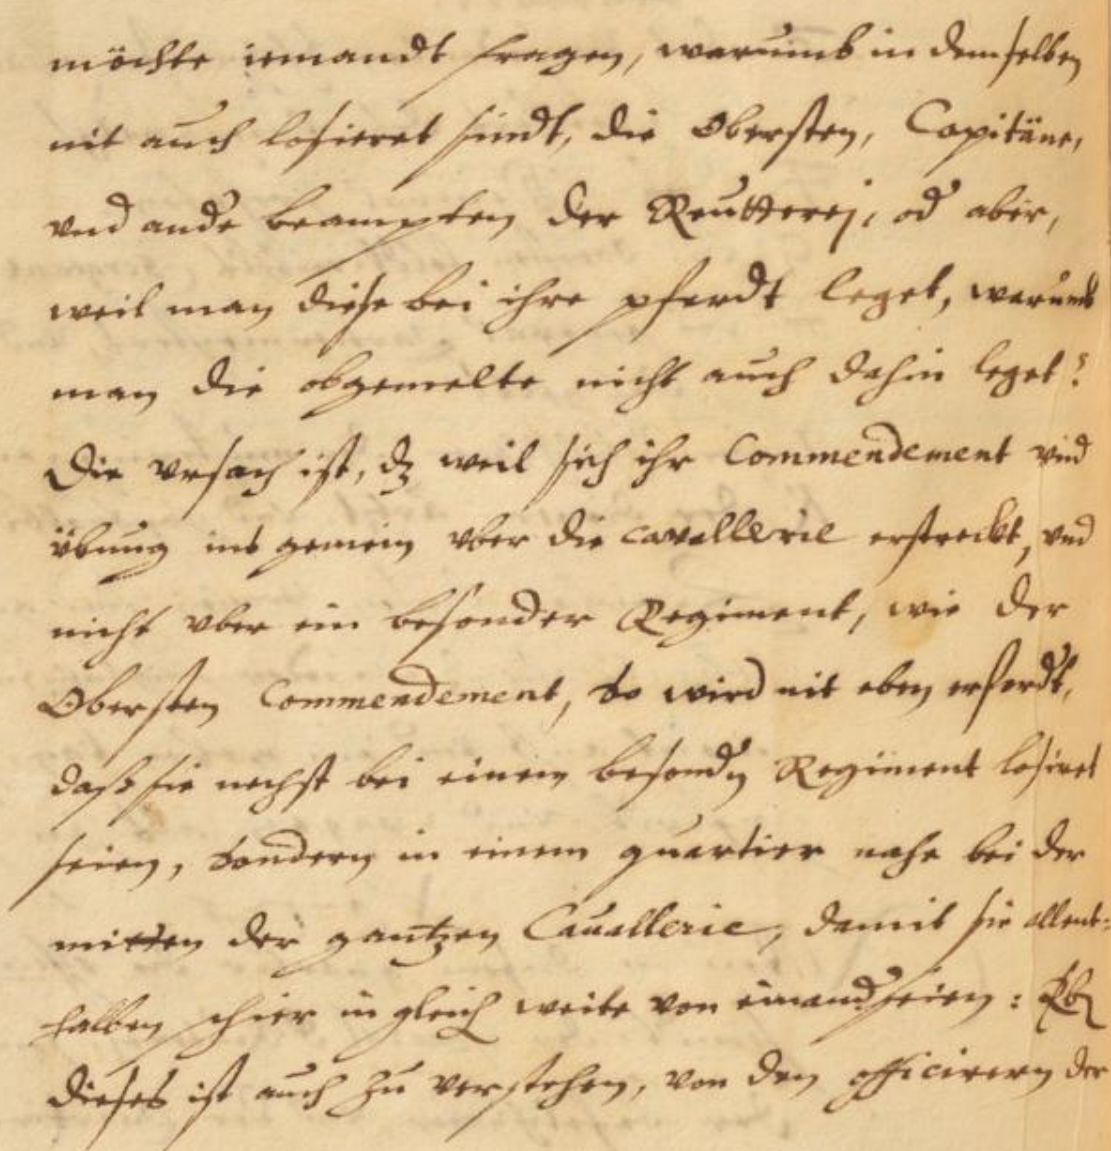 möchte iemandt fragen, warumb in demselben
nit auch losieret sindt, die Obersten, Capitäne,
vnd ande beampten der Reutterej, od aber,
weil man diese bei ihre pferdt leget, warumb
man die obgemelte nicht auch dahin leget?
Die vrsach ist, dz weil sich ihr Commendement vnd
übung ins gemein vber die cavallerie erstreckt, vnd
nicht vber ein besonder Regiment, wie der
Obersten Commendement, so wird nit eben erfordt,
daß sie nechst bei einem besondn Regiment losiret
seien, sondern in einem quartier nahe bei der
mitten der gantzen Cauallerie, damit sie allent=
halben schier in gleich weite von einand seien: Eben
dieses ist auch zu verstehen, von den officirern der